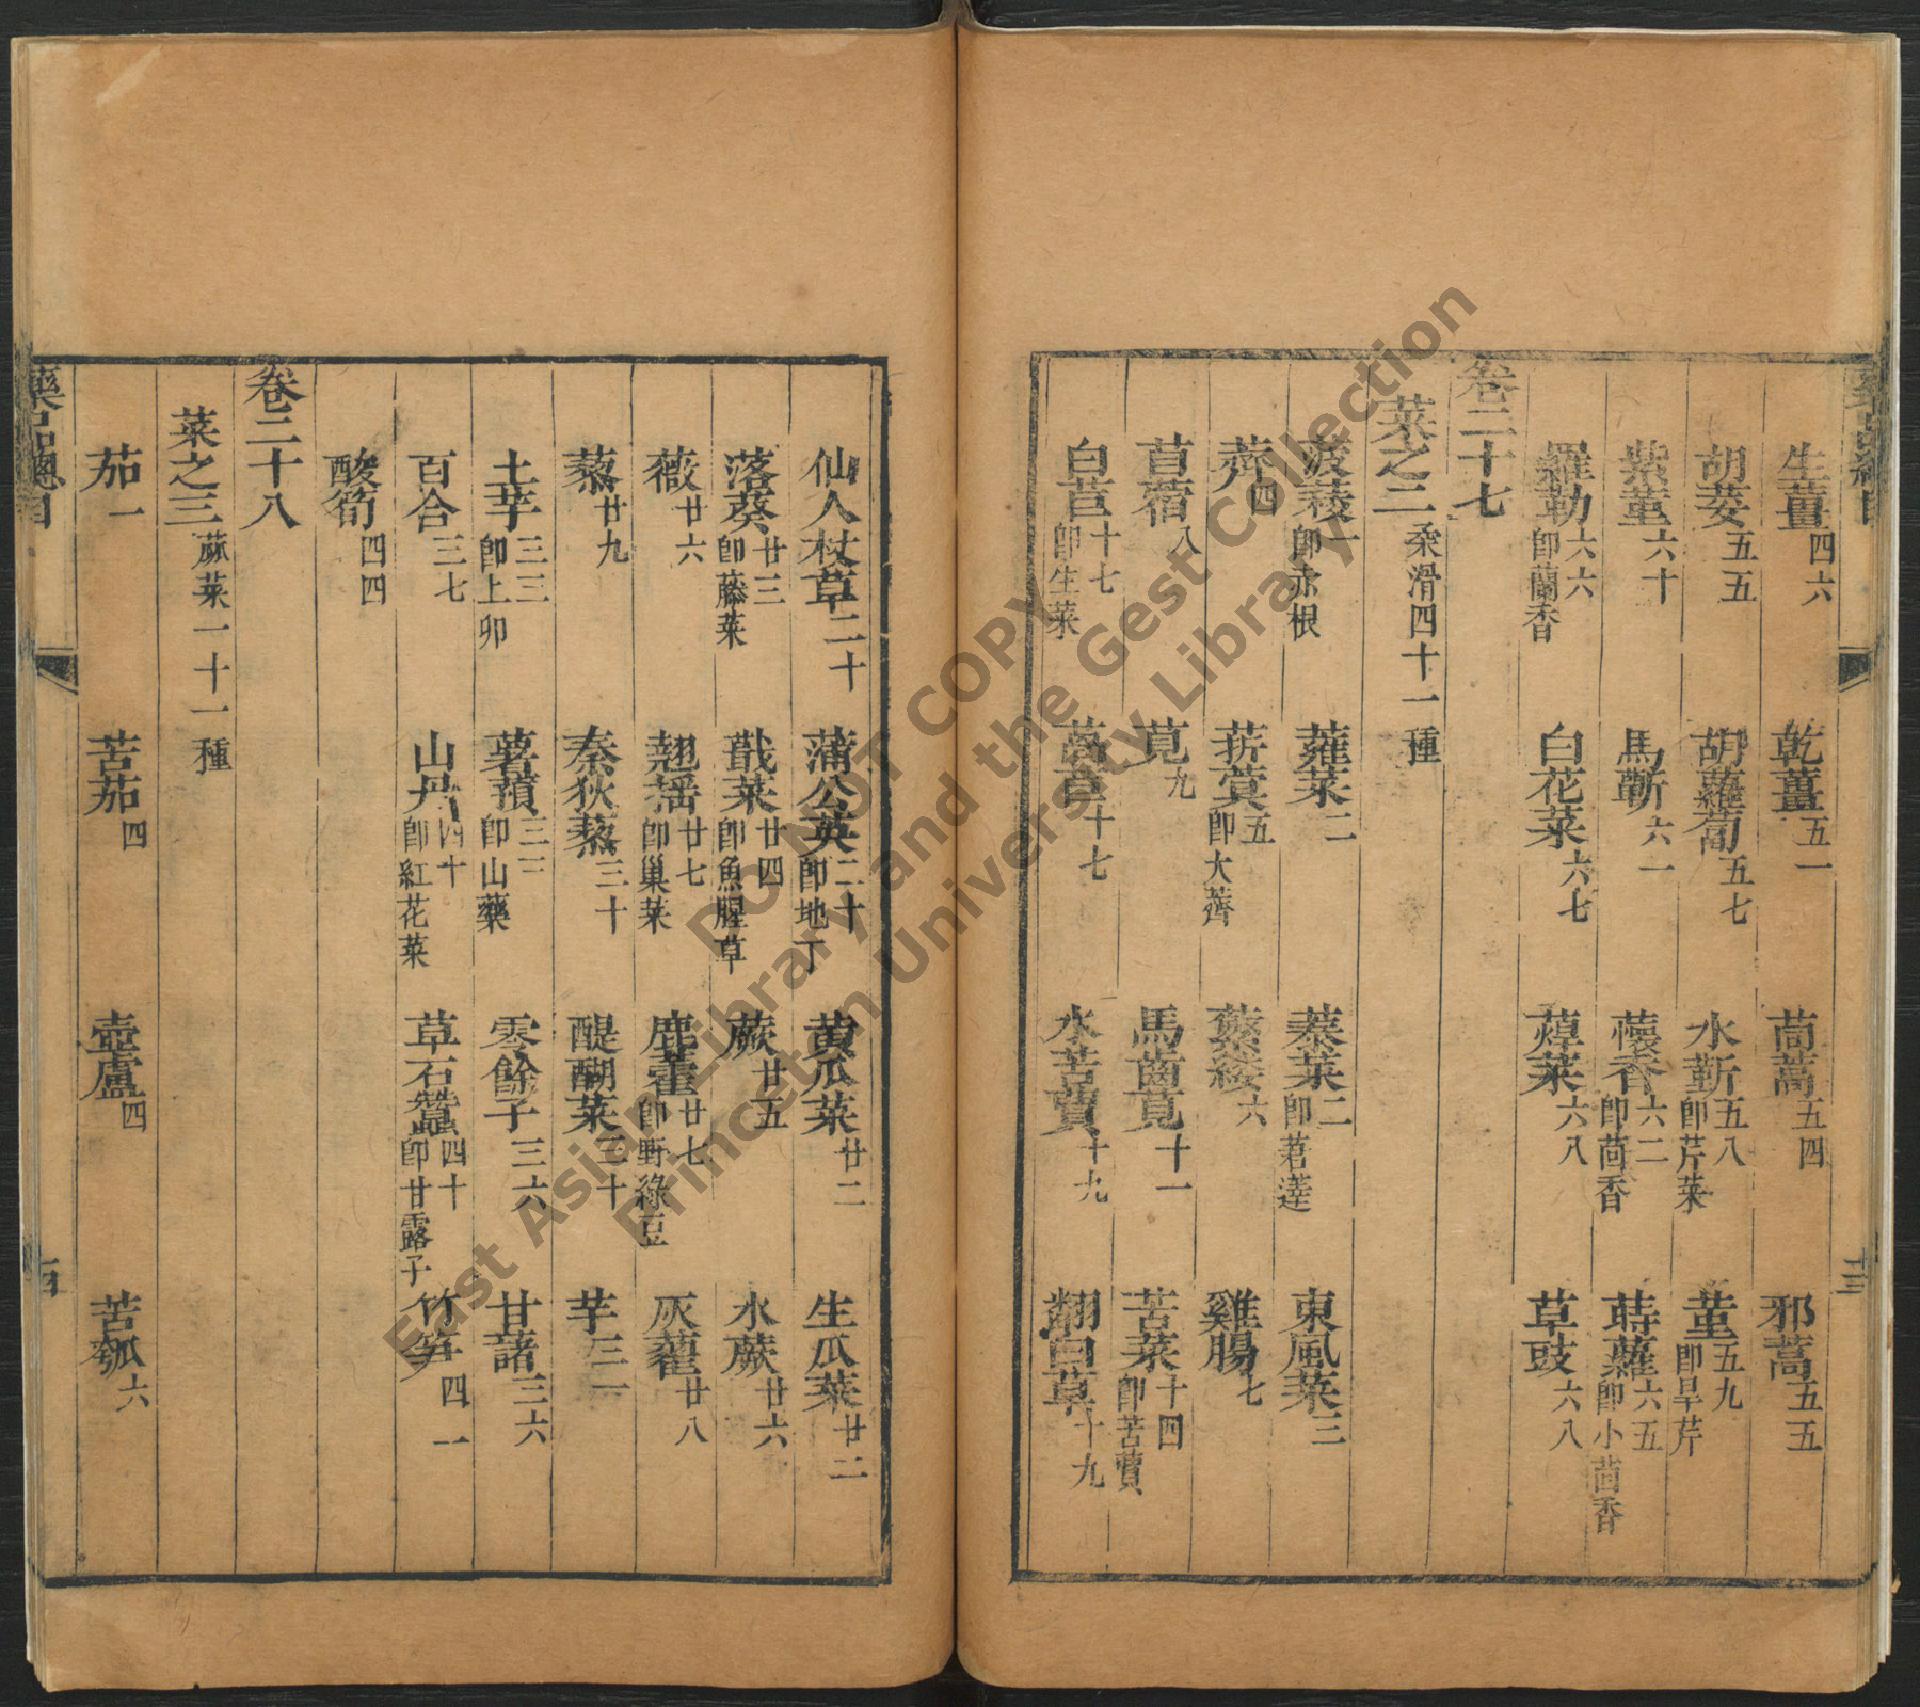 生薑四六 乾薑五一 茼蒿五四 邪蒿五五
胡荽五五 胡蘿蔔五七 水蘄五八即芹菜 堇五九即旱芹
紫堇六十 馬蘄六一 蘹香六二即茴香 蒔蘿六五即小茴香
羅勒六六即蘭香 白花菜六七 蔊菜六八 草豉六八
卷二十七
菜之二柔滑四十一種
菠薐一即赤根 蕹菜二 菾菜二即莙薘 東風菜三
薺四 菥蓂五即大薺 蘩縷六 雞腸七
苜蓿八 莧九 馬齒莧十一 苦菜十四即苦蕒
白苣十七即生菜 萵苣十七 水苦蕒十九 翻白草十九
十三
仙人杖草二十 蒲公英二十即地丁 黄瓜菜廿二 生瓜菜廿二
落葵廿三即藤菜 蕺菜廿四即魚腥草 蕨廿五 水蕨廿六
薇廿六 翹摇廿七即巢菜 鹿藿廿七即野綠豆 灰藋廿八
藜廿九 秦狄藜三十 醍醐菜三十 芋三一
土芋三三即土卵 薯蕷三三即山藥 零餘子三六 甘藷三六
百合三七 山丹四十即紅花菜 草石蠶四十即甘露子 竹笋四一
酸筍四四
卷二十八
菜之三蓏菜一十一種
茄一 苦茄四 壺盧四 苦瓠六
藥品總目
十四
DO NOT COPY
East Asian Library and the Gest Collection
Princeton University Library